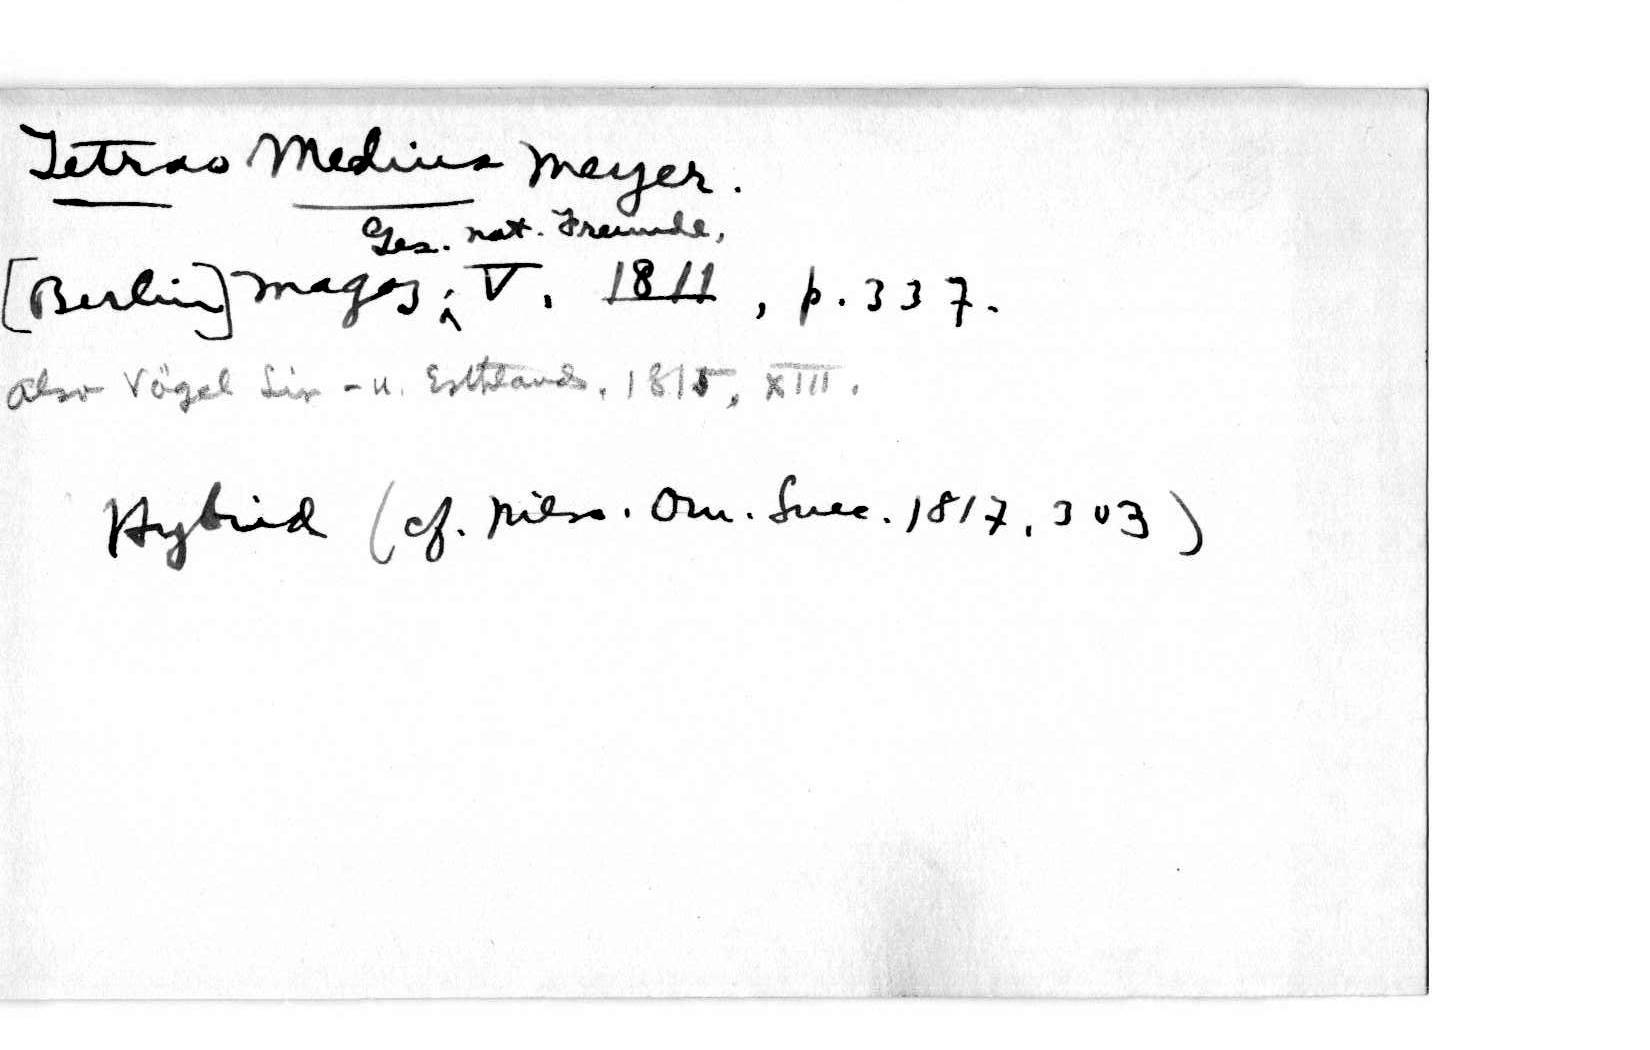 Tetrao Medius Meyer.
Ges. nat. Freunde,
[Berlin] Magaz; V, 1811, p. 337.
Also Vögel Liv - u. Esthlands, 1815, XIII.
Hybrid (cf. Nilss. Orn. Suec. 1817, 303)